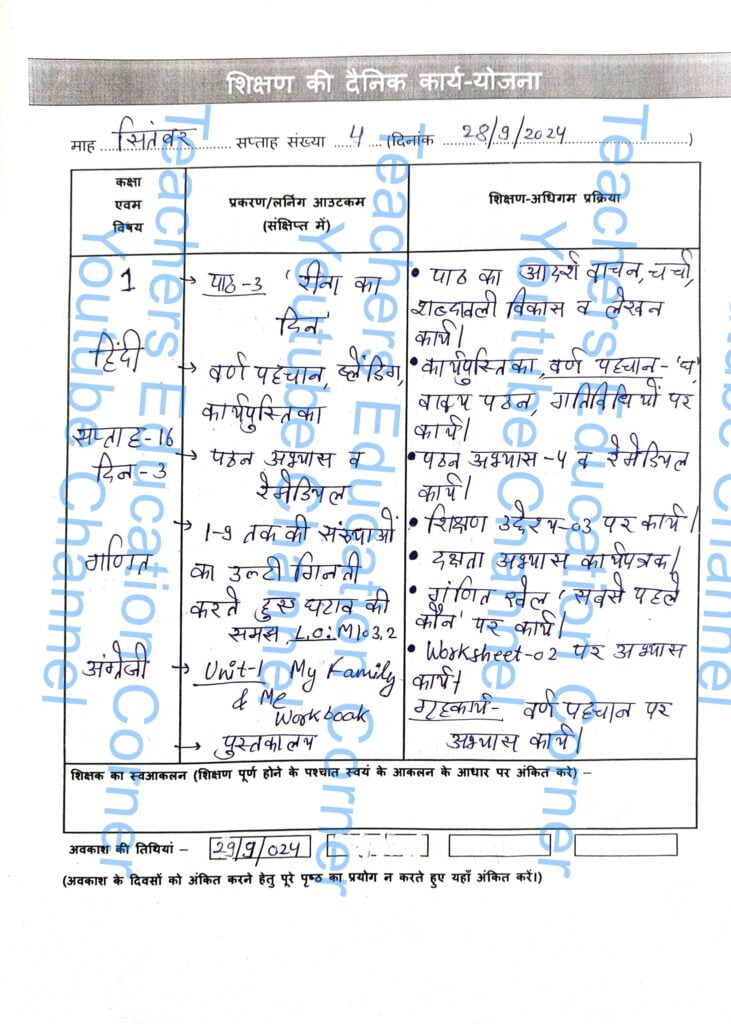 शिक्षण की दैनिक कार्य-योजना
माह ... सितंबर ... सप्ताह संख्या ... 4 ... (दिनांक ... 28/9/2024 ...)
कक्षा
एवम
विषय
प्रकरण/लर्निंग आउटकम
(संक्षिप्त में)
शिक्षण-अधिगम प्रक्रिया
1
हिंदी
सप्ताह-16
दिन-3
→ पाठ-3 'रीना का
दिन'
→ वर्ण पहचान, ब्लेंडिंग,
कार्यपुस्तिका
→ पठन अभ्यास व
रेमेडियल
• पाठ का आदर्श वाचन, चर्चा,
शब्दावली विकास व लेखन
कार्य।
• कार्यपुस्तिका, वर्ण पहचान-'व',
वाक्य पठन, गतिविधियों पर
कार्य।
• पठन अभ्यास-4 व रेमेडियल
कार्य।
गणित
→ 1-9 तक की संख्याओं
का उल्टी गिनती
करते हुए घटाव की
समझ L.O: M103.2
• शिक्षण उद्देश्य-03 पर कार्य।
• दक्षता अभ्यास कार्यपत्रक।
• गणित खेल 'सबसे पहले
कौन' पर कार्य।
अंग्रेजी
→ Unit-1 My Family
& Me
Workbook
→ पुस्तकालय
• Worksheet-02 पर अभ्यास
कार्य।
गृहकार्य- वर्ण पहचान पर
अभ्यास कार्य।
शिक्षक का स्वआकलन (शिक्षण पूर्ण होने के पश्चात स्वयं के आकलन के आधार पर अंकित करे) –
अवकाश की तिथियां – 29/9/024
(अवकाश के दिवसों को अंकित करने हेतु पूरे पृष्ठ का प्रयोग न करते हुए यहाँ अंकित करें।)
Teachers Education Corner
Youtube Channel
Teachers Education Corner
Youtube Channel
Teachers Education Corner
Youtube Channel